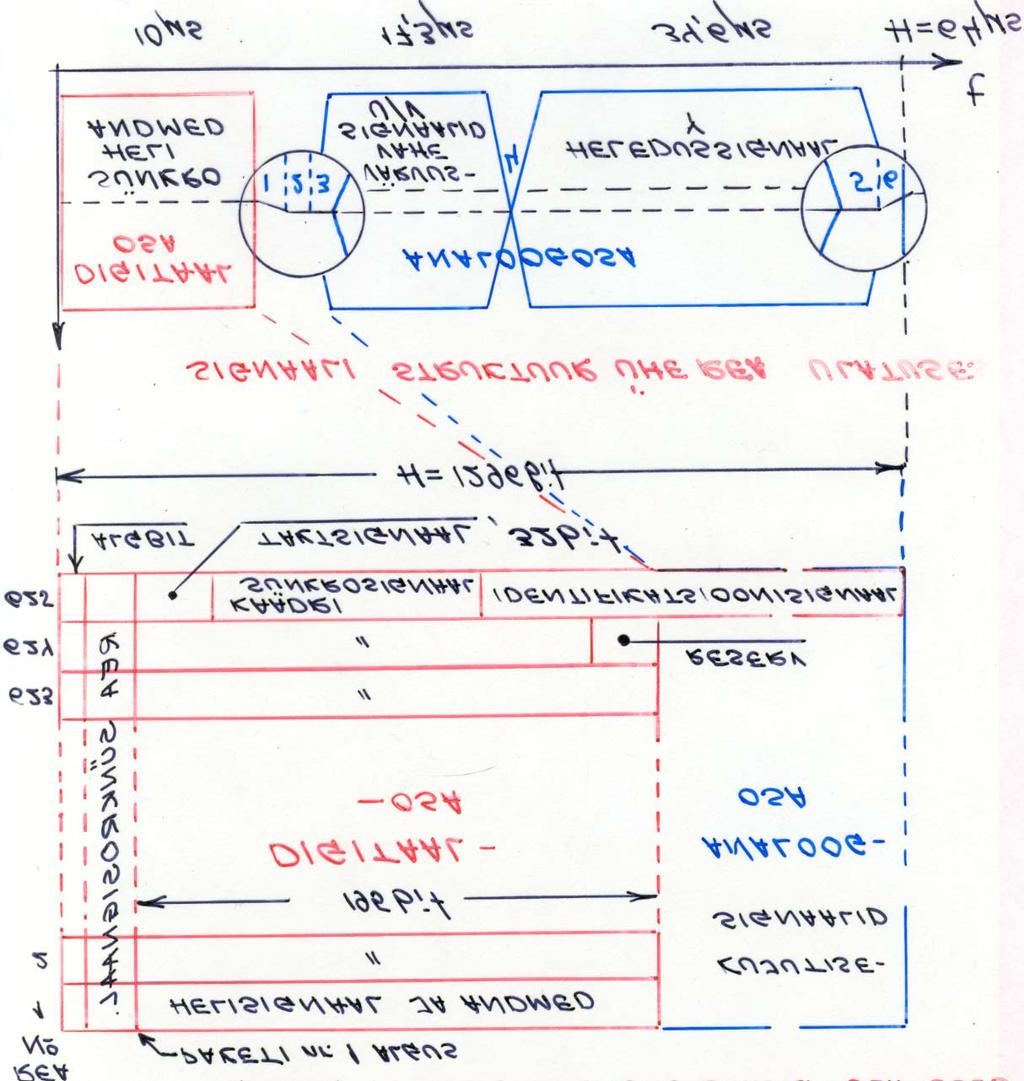 REA
No
PAKETI nr. 1 ALGUS
1
HELISIGNAAL JA ANDMED
2
"
KUJUTISE-
SIGNAALID
198 bit
DIGITAAL-
-OSA
ANALOOG-
OSA
REA SÜNKROSIGNAAL
623
"
624
"
RESERV
625
KAADRI
SÜNKROSIGNAAL
IDENTIFIKATSIOONISIGNAAL
ALGBIT
TAKTSIGNAAL, 32bit
H=1296bit
SIGNAALI STRUKTUUR ÜHE REA ULATUSE
DIGITAAL
OSA
ANALOOGOSA
SÜNKRO
HELI
ANDMED
1 2 3
VÄRVUS-
VAHE
SIGNAALID
U/V
4
HELEDUSSIGNAAL
Y
5 6
t
10µs
17,3µs
34,6µs
H=64µs